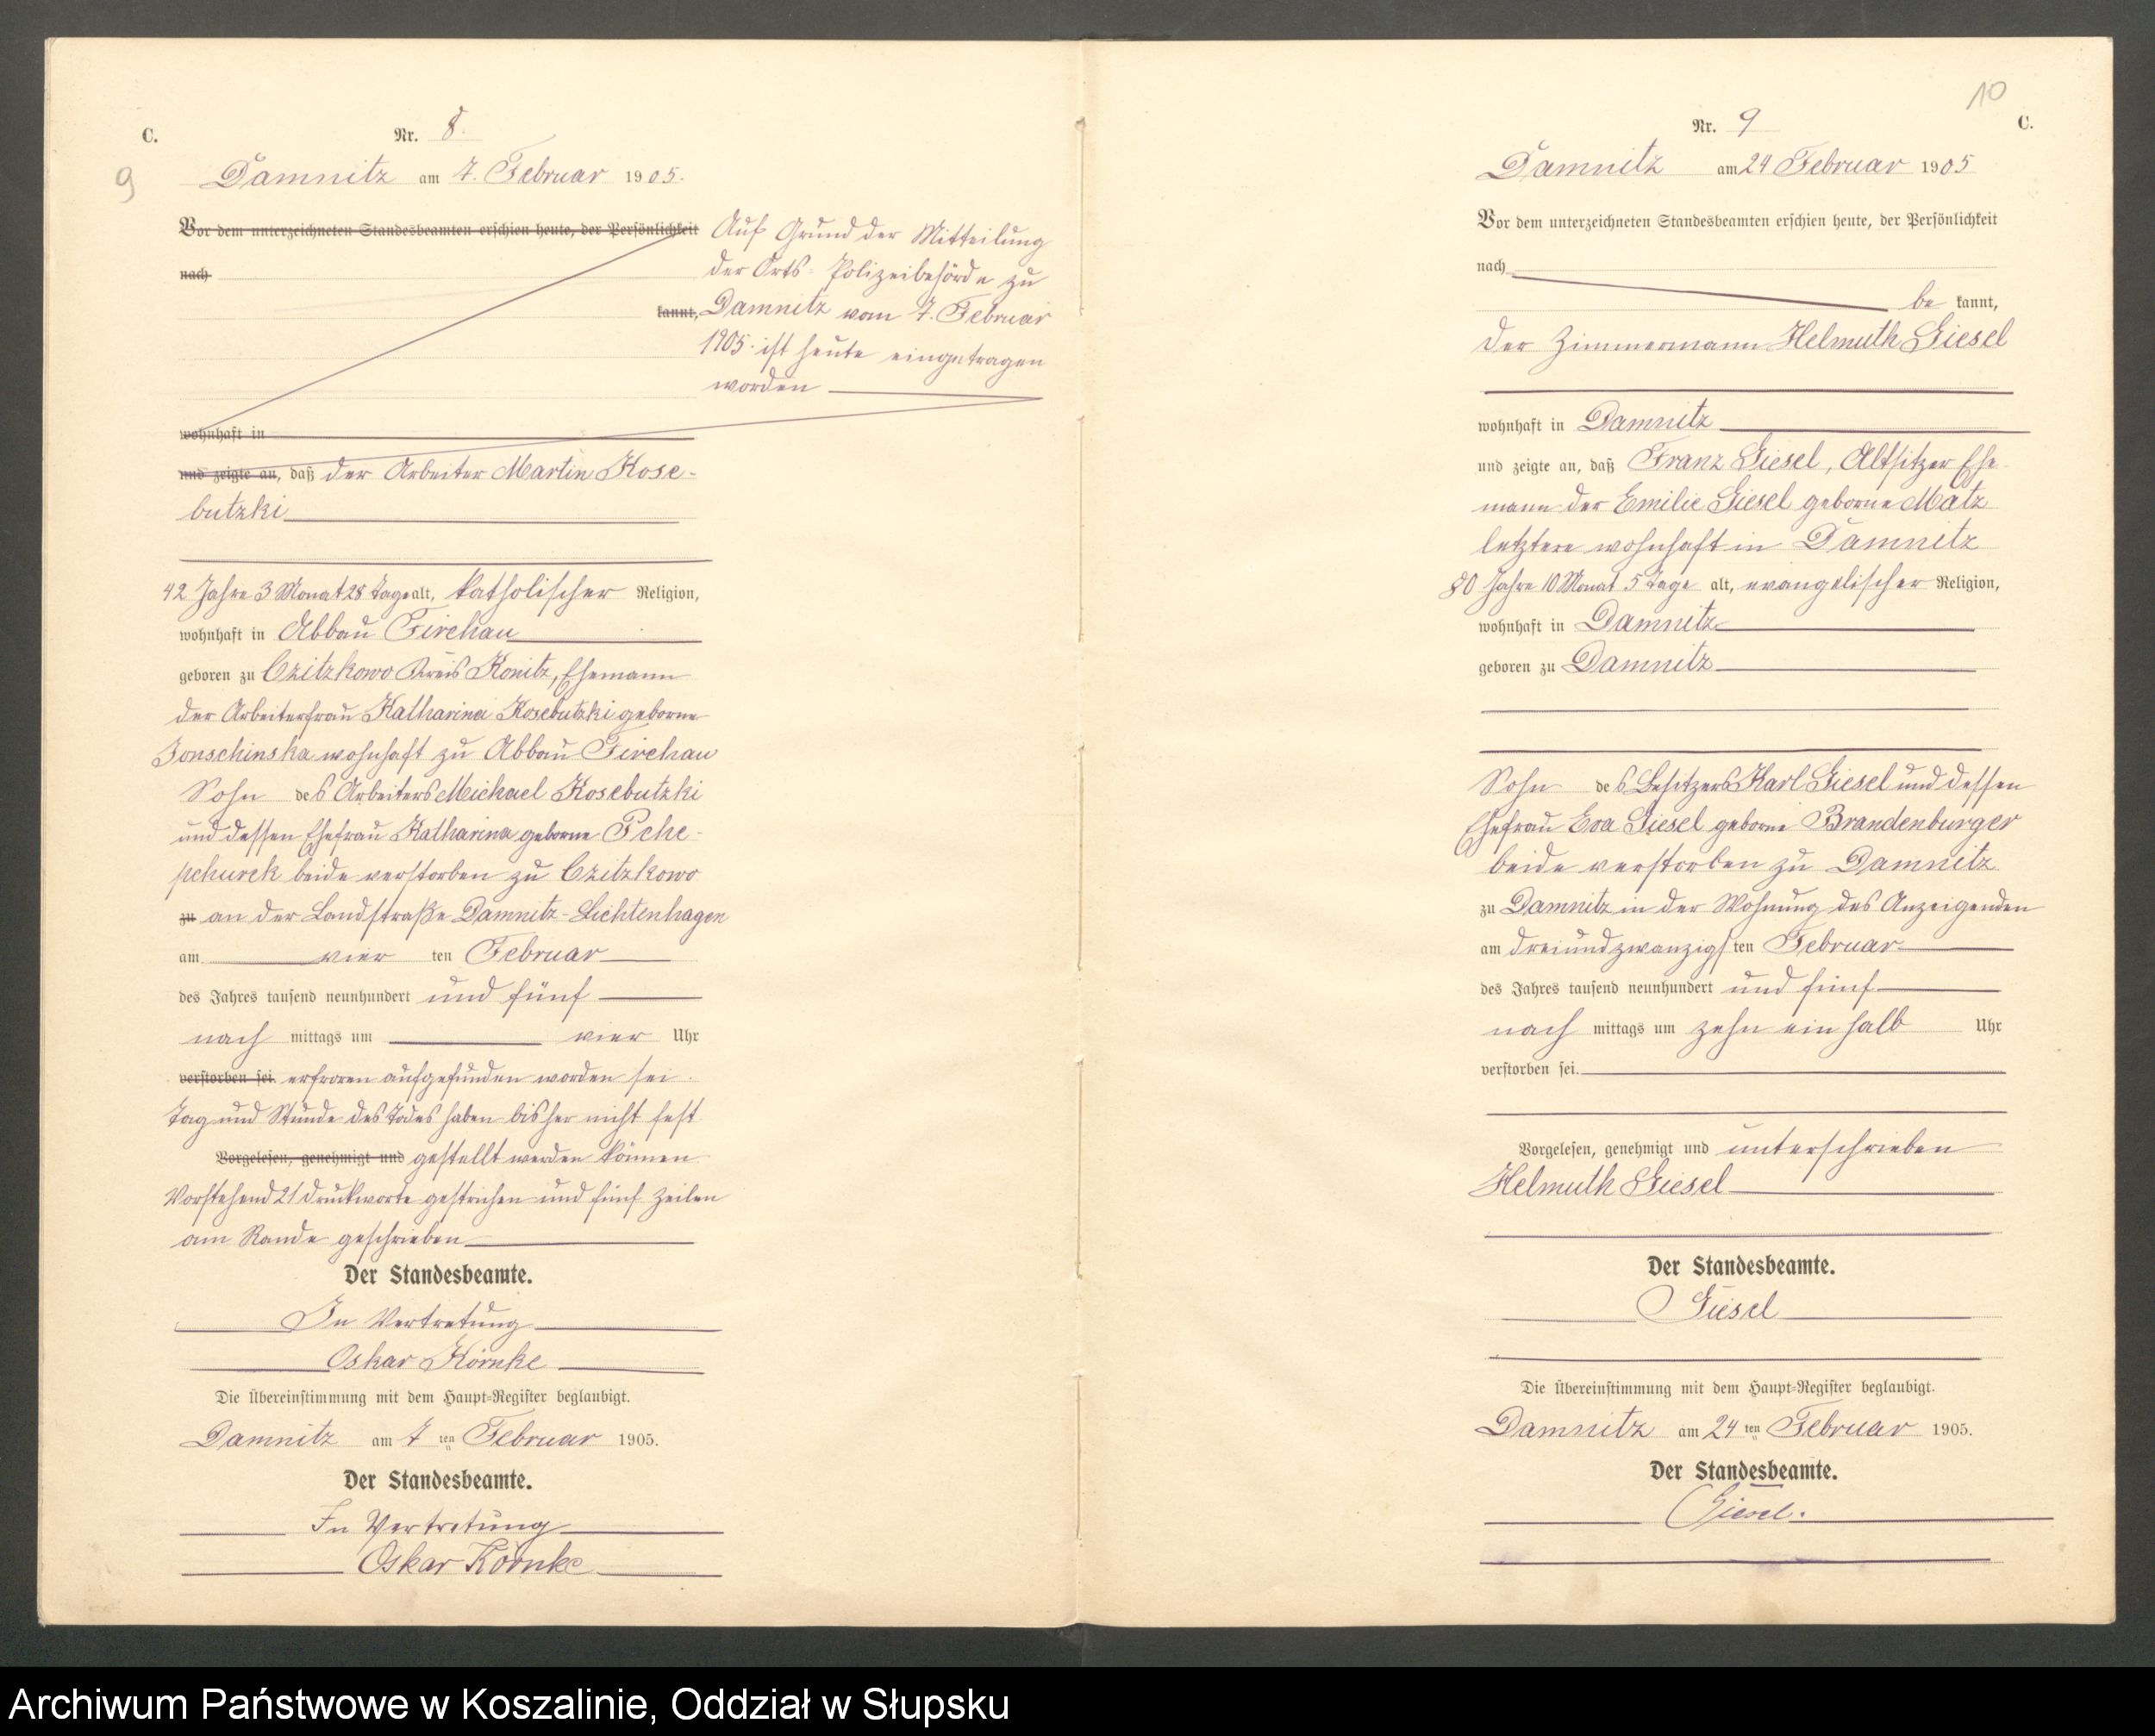 C.
Nr. 8.
9
Damnitz am 7. Februar 1905.
Vor dem unterzeichneten Standesbeamten erschien heute, der Persönlichkeit
nach
kannt,
Auf Grund der Mitteilung
der Orts-Polizeibehörde zu
Damnitz vom 7. Februar
1905. ist heute eingetragen
worden
wohnhaft in
und zeigte an, daß der Arbeiter Martin Kose-
butzki
42 Jahre 3 Monat 28 Tage alt, katholischer Religion,
wohnhaft in Abbau Firchau
geboren zu Czitzkowo Kreis Konitz, Ehemann
der Arbeiterfrau Katharina Kosebutzki geborne
Jonschinska wohnhaft zu Abbau Firchau
Sohn des Arbeiters Michael Kosebutzki
und dessen Ehefrau Katharina geborne Pche-
pchurek beide verstorben zu Czitzkowo
zu an der Landstraße Damnitz-Lichtenhagen
am vier ten Februar
des Jahres tausend neunhundert und fünf
nach mittags um vier Uhr
verstorben sei. erfroren aufgefunden worden sei.
Tag und Stunde des Todes haben bisher nicht fest
Vorgelesen, genehmigt und gestellt werden können
Vorstehend 21 Druckworte gestrichen und fünf Zeilen
am Rande geschrieben
Der Standesbeamte.
In Vertretung
Oskar Körnke
Die Übereinstimmung mit dem Haupt-Register beglaubigt.
Damnitz am 7 ten Februar 1905.
Der Standesbeamte.
In Vertretung
Oskar Körnke
10
Nr. 9
C.
Damnitz am 24 Februar 1905
Vor dem unterzeichneten Standesbeamten erschien heute, der Persönlichkeit
nach
be kannt,
der Zimmermann Helmuth Giesel
wohnhaft in Damnitz
und zeigte an, daß Franz Giesel, Altsitzer Ehe-
mann der Emilie Giesel geborne Matz
letztere wohnhaft in Damnitz
80 Jahre 10 Monat 5 Tage alt, evangelischer Religion,
wohnhaft in Damnitz
geboren zu Damnitz
Sohn des Besitzers Karl Giesel und dessen
Ehefrau Eva Giesel geborne Brandenburger
beide verstorben zu Damnitz
zu Damnitz in der Wohnung des Anzeigenden
am dreiundzwanzigs ten Februar
des Jahres tausend neunhundert und fünf
nach mittags um zehn ein halb Uhr
verstorben sei.
Vorgelesen, genehmigt und unterschrieben
Helmuth Giesel
Der Standesbeamte.
Giesel
Die Übereinstimmung mit dem Haupt-Register beglaubigt.
Damnitz am 24 ten Februar 1905.
Der Standesbeamte.
Giesel.
Archiwum Państwowe w Koszalinie, Oddział w Słupsku